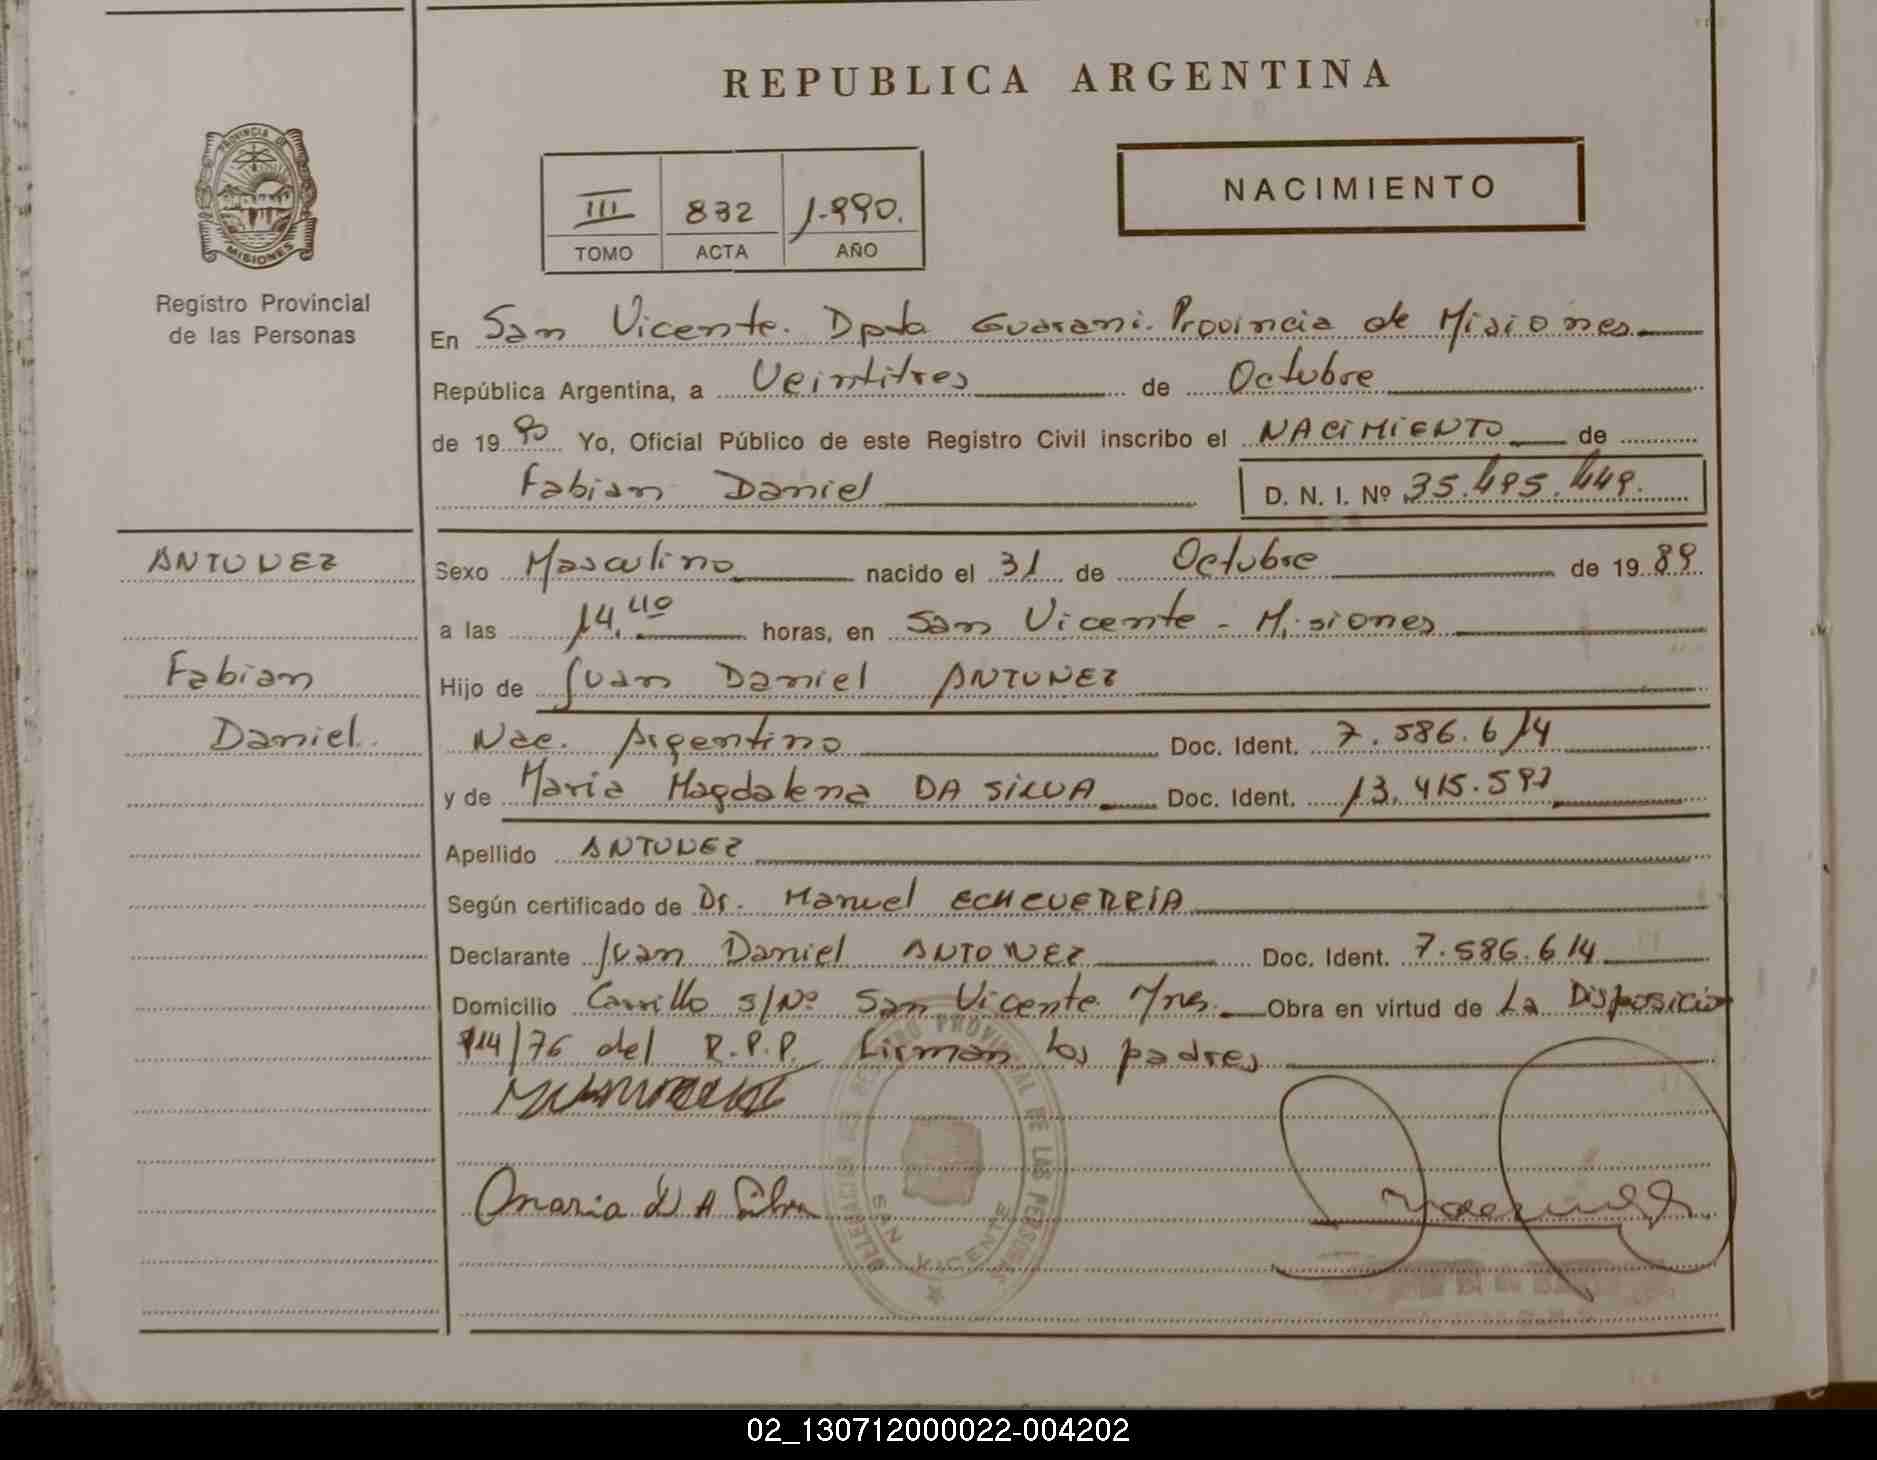 REPUBLICA ARGENTINA
PROVINCIA DE
MISIONES
Registro Provincial
de las Personas
III 832 1.990.
TOMO ACTA AÑO
NACIMIENTO
En San Vicente. Dpto Guarani. Provincia de Misiones
República Argentina, a Veintitres de Octubre
de 19 90 Yo, Oficial Público de este Registro Civil inscribo el NACIMIENTO de
Fabian Daniel D. N. I. Nº 35.495.449.
ANTUNEZ
Fabian
Daniel.
Sexo Masculino nacido el 31 de Octubre de 19 89
a las 14,40 horas, en San Vicente - Misiones
Hijo de Juan Daniel ANTUNEZ
Nac. Argentino Doc. Ident. 7.586.614
y de Maria Magdalena DA SILVA Doc. Ident. 13.415.597
Apellido ANTUNEZ
Según certificado de Dr. Manuel ECHEVERRIA
Declarante Juan Daniel ANTUNEZ Doc. Ident. 7.586.614
Domicilio Carrillo s/Nº San Vicente Mnes. Obra en virtud de La Disposicion
114/76 del R.P.P. Firman los padres
Maria d A Silva
DELEGACION DEL REGISTRO PROVINCIAL DE LAS PERSONAS
SAN VICENTE
02_130712000022-004202